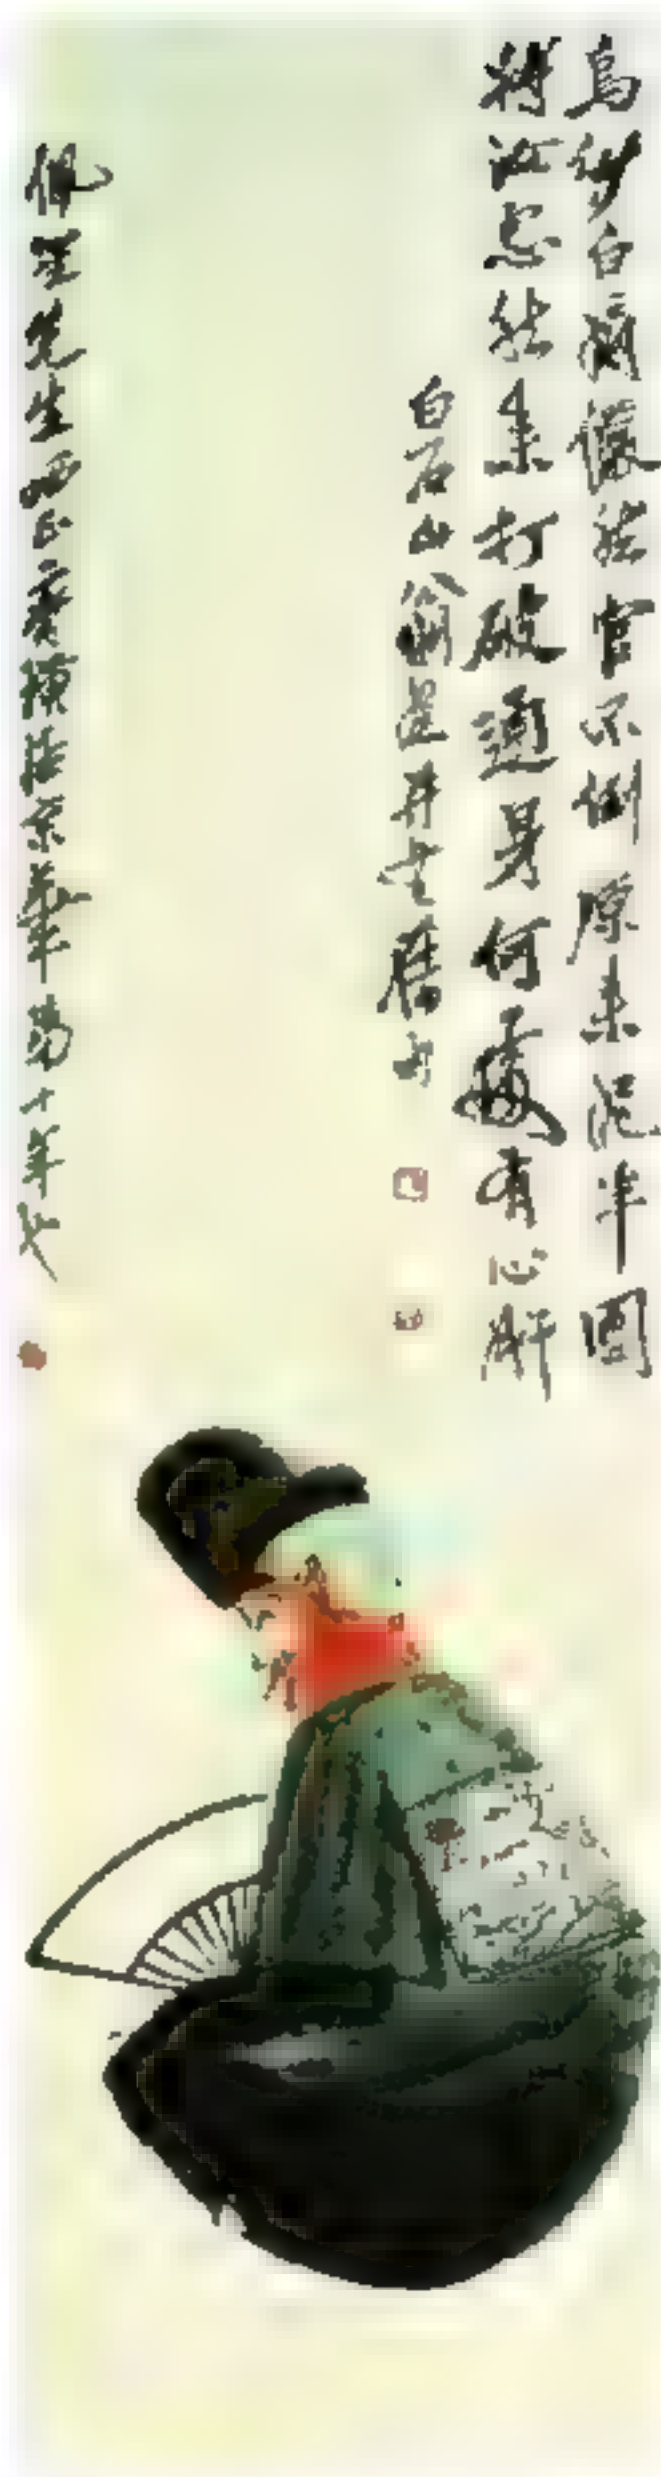 烏紗白扇儼然官不倒原來泥半團
將汝忽然來打破通身何處有心肝
白石山翁造并書舊句
佩生先生晒正齊橫居京華第十年也